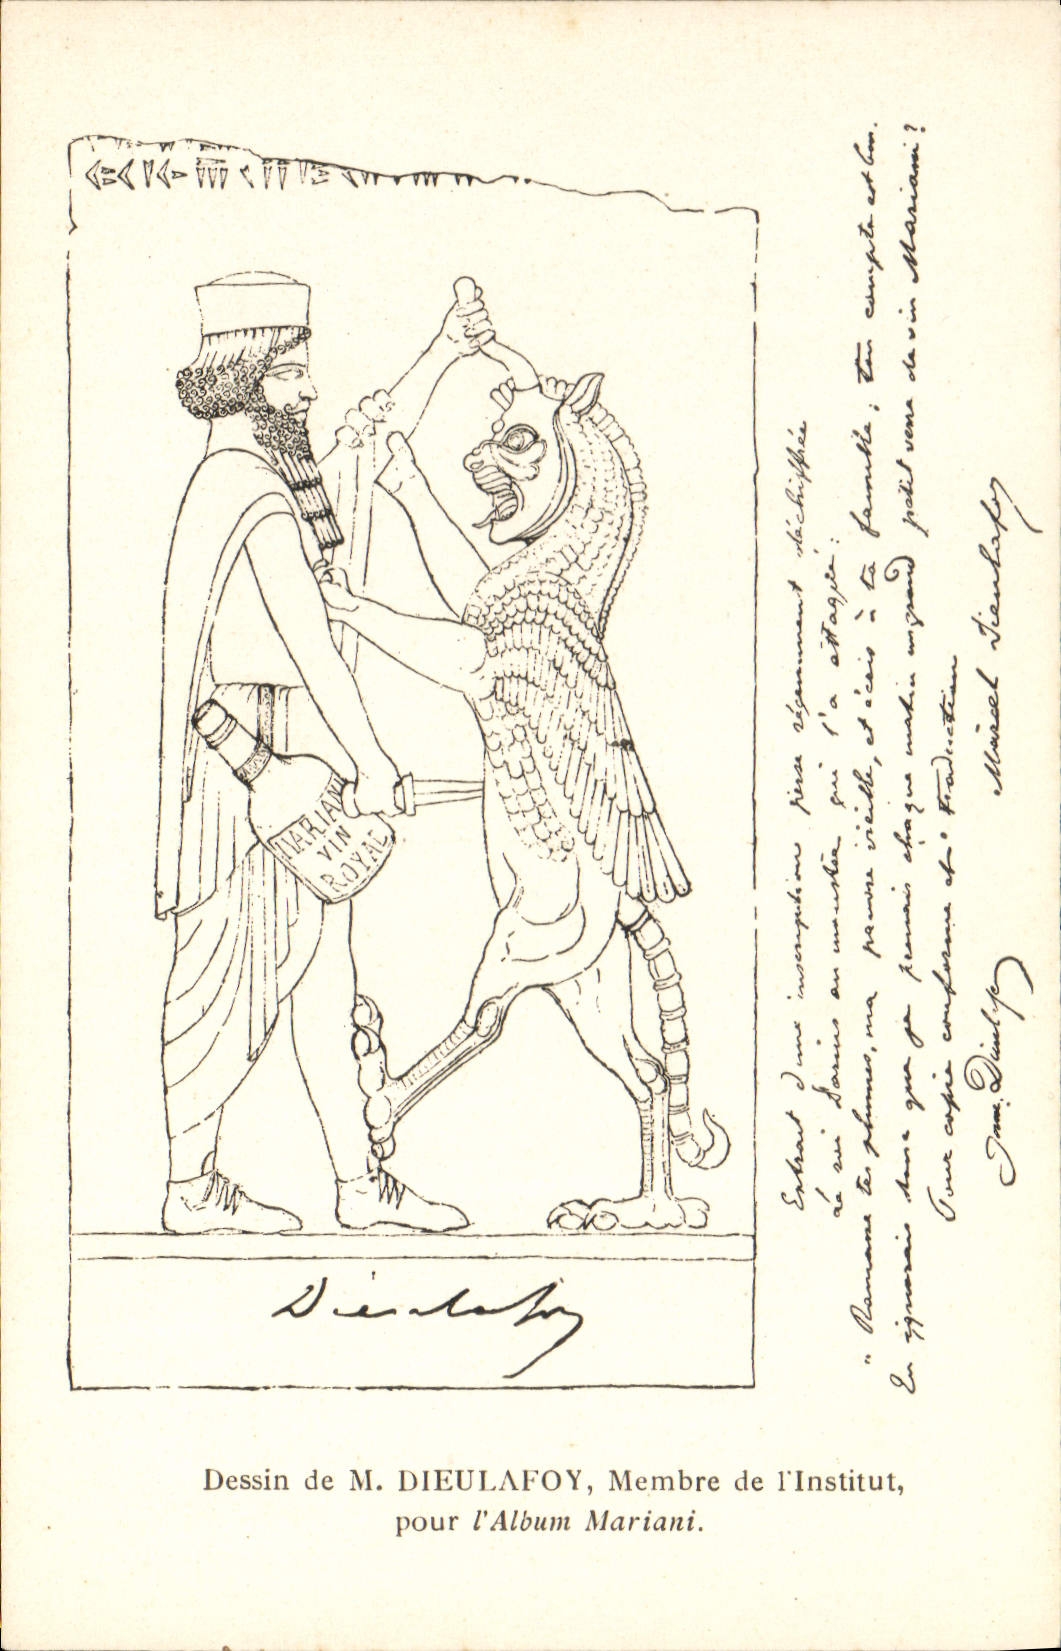 MARIANI
VIN
ROYAL
Dieulafoy
Extrait d'une inscription perse récemment déchiffrée
Le roi Darius au monstre qui l'a attaqué :
" Ramasse tes plumes, ma pauvre vieille, et écris à ta famille ; ton compte est bon.
Tu ignorais donc que je prenais chaque matin un grand petit verre de vin Mariani ?
Pour copie conforme et traduction
Jane Dieulafoy Marcel Dieulafoy
Dessin de M. DIEULAFOY, Membre de l'Institut,
pour l'Album Mariani.